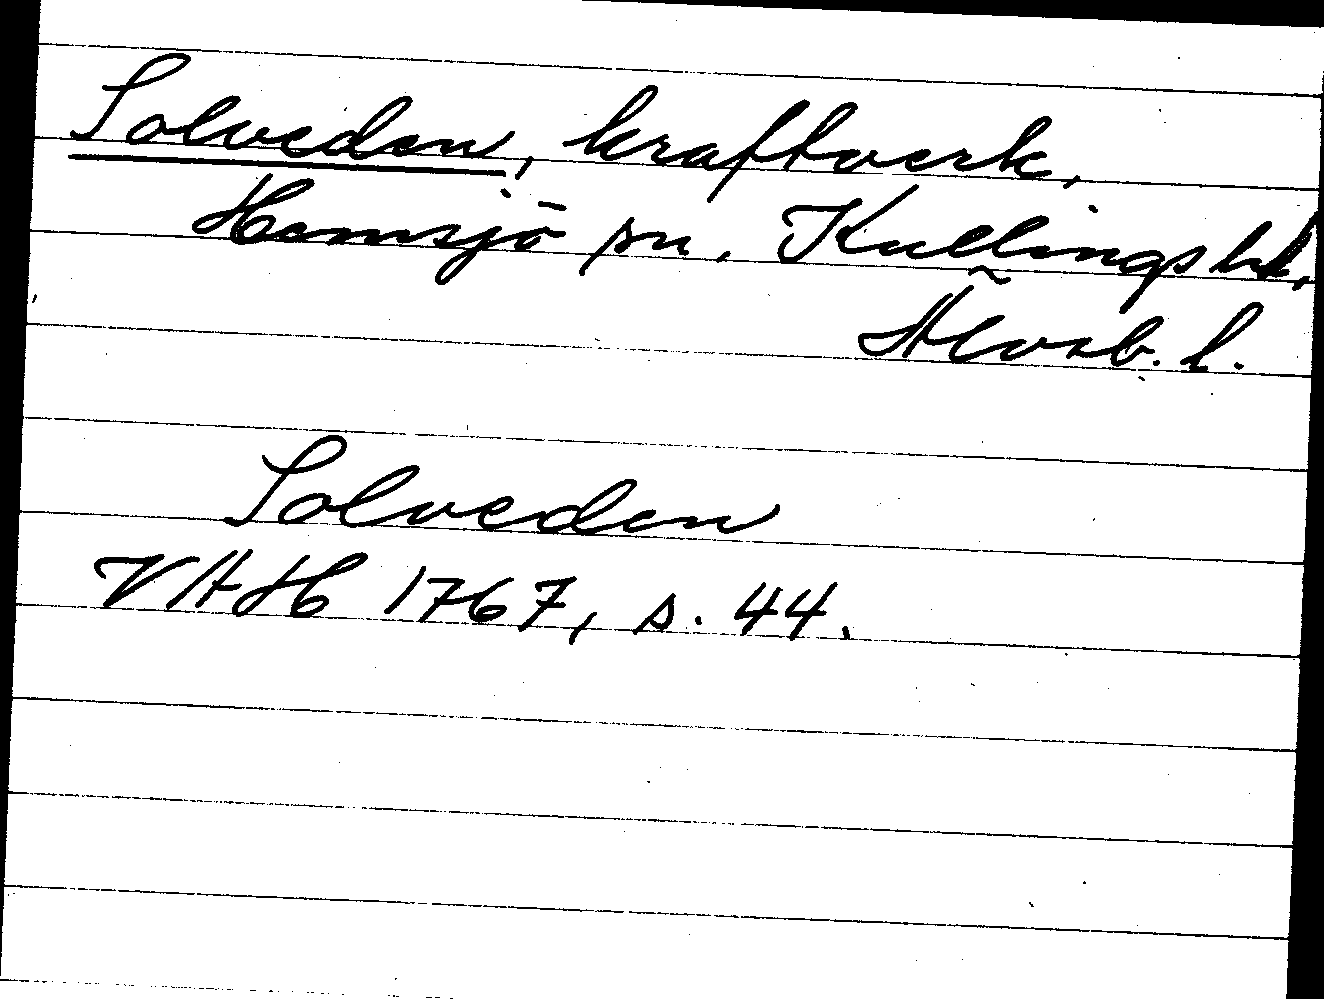 Solveden, kraftverk,
Hemsjö sn, Kullings hd,
Älvsb. l.
Solveden
VAH 1767, s. 44.